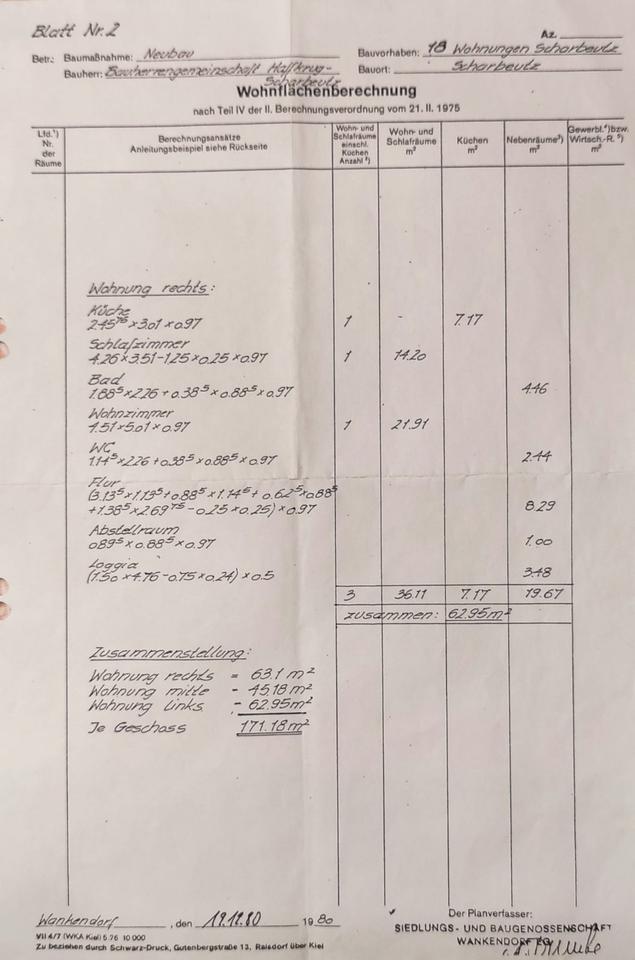 Blatt Nr. 2
Az.
Betr.: Baumaßnahme: Neubau
Bauvorhaben: 18 Wohnungen Scharbeutz
Bauherr: Bauherrengemeinschaft Haffkrug-
Scharbeutz
Bauort: Scharbeutz
Wohnflächenberechnung
nach Teil IV der II. Berechnungsverordnung vom 21. II. 1975
Lfd.¹) Nr. der Räume
Berechnungsansätze
Anleitungsbeispiel siehe Rückseite
Wohn- und Schlafräume einschl. Küchen Anzahl ²)
Wohn- und Schlafräume m²
Küchen m²
Nebenräume³) m²
Gewerbl.⁴) bzw. Wirtsch.-R. ⁵) m²
Wohnung rechts:
Küche
2.45⁷⁵ x 3.01 x 0.97 1 - 7.17
Schlafzimmer
4.26 x 3.51 - 1.25 x 0.25 x 0.97 1 14.20
Bad
1.88⁵ x 2.26 + 0.38⁵ x 0.88⁵ x 0.97 4.46
Wohnzimmer
4.51 x 5.01 x 0.97 1 21.91
WC
1.14⁵ x 2.26 + 0.38⁵ x 0.88⁵ x 0.97 2.44
Flur
(3.13⁵ x 1.13⁵ + 0.88⁵ x 1.14⁵ + 0.62⁵ x 0.88⁵
+ 1.38⁵ x 2.69⁷⁵ - 0.25 x 0.25) x 0.97 8.29
Abstellraum
0.89⁵ x 0.88⁵ x 0.97 1.00
Loggia
(1.50 x 4.76 - 0.75 x 0.24) x 0.5 3.48
3 36.11 7.17 19.67
zusammen: 62.95 m²
Zusammenstellung:
Wohnung rechts = 63.1 m²
Wohnung mitte - 45.18 m²
Wohnung links - 62.95 m²
Je Geschoss 171.18 m²
Wankendorf, den 19.12.80 1980
Der Planverfasser:
SIEDLUNGS- UND BAUGENOSSENSCHAFT
WANKENDORF EG
VII 4/7 (WKA Kiel) 5.76 10 000
Zu beziehen durch Schwarz-Druck, Gutenbergstraße 13, Raisdorf über Kiel